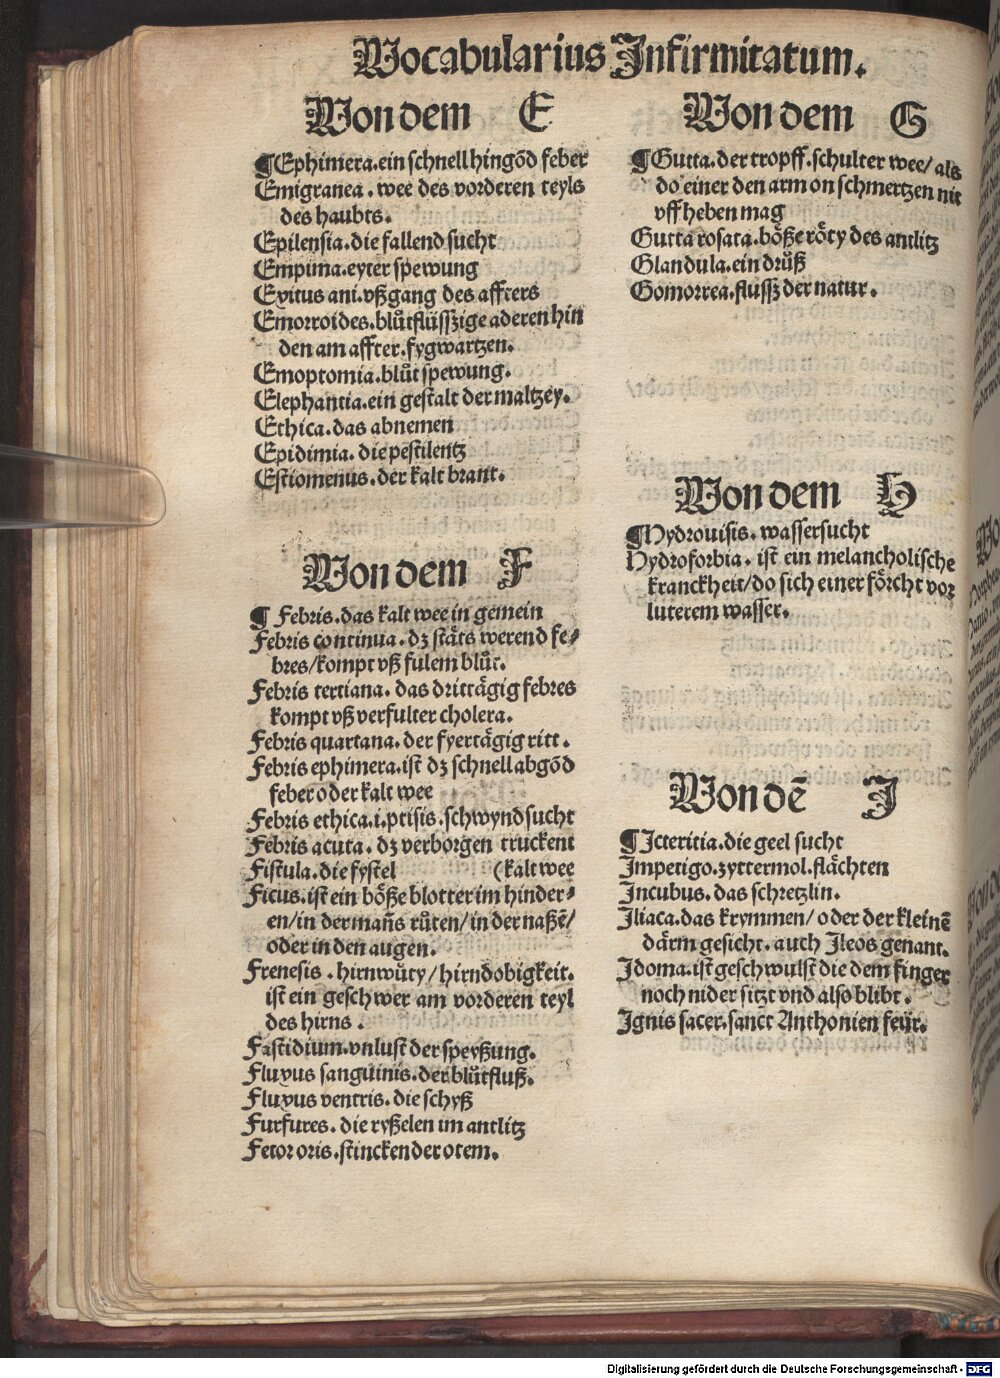 Vocabularius Infirmitatum.
Von dem E
¶ Ephimera. ein schnell hingōd feber
Emigranea. wee des vorderen teyls
des haubts.
Epilensia. die fallend sucht
Empima. eyter spewung
Exitus ani. vßgang des affters
Emorroides. blůtflüsszige aderen hin
den am affter. fygwartzen.
Emoptomia. blůt spewung.
Elephantia. ein gestalt der maltzey.
Ethica. das abnemen
Epidimia. die pestilentz
Estiomenus. der kalt brant.
Von dem F
¶ Febris. das kalt wee in gemein
Febris continua. dz stäts werend fe⸗
bres/kompt vß fulem blůt.
Febris tertiana. das drittägig febres
kompt vß verfulter cholera.
Febris quartana. der fyertägig ritt.
Febris ephimera. ist dz schnell abgōd
feber oder kalt wee
Febris ethica. i. ptisis. schwyndsucht
Febris acuta. dz verborgen truckent
Fistula. die fystel (kalt wee
Ficus. ist ein böße blotter im hinder⸗
en/in der mañs růten/in der naßē/
oder in den augen.
Frenesis. hirnwůty/hirndobigkeit.
ist ein geschwer am vorderen teyl
des hirns.
Fastidium. vnlust der speyßung.
Fluxus sanguinis. der blůtfluß.
Fluxus ventris. die schyß
Furfures. die ryßelen im antlitz
Fetor oris. stinckender otem.
Von dem G
¶ Gutta. der tropff. schulter wee/als
do einer den arm on schmertzen nit
vff heben mag
Gutta rosata. böße röty des antlitz
Glandula. ein drüß
Gomorrea. flussz der natur.
Von dem H
¶ Hydrouisis. wassersucht
Hydroforbia. ist ein melancholische
kranckheit/do sich einer förcht vor
luterem wasser.
Von dē J
¶ Icteritia. die geel sucht
Impetigo. zyttermol. flächten
Incubus. das schretzlin.
Iliaca. das krymmen/oder der kleinē
därm gesicht. auch Ileos genant.
Idoma. ist geschwulst die dem finger
noch nider sitzt vnd also blibt.
Ignis sacer. sanct Anthonien feür.
Digitalisierung gefördert durch die Deutsche Forschungsgemeinschaft - DFG